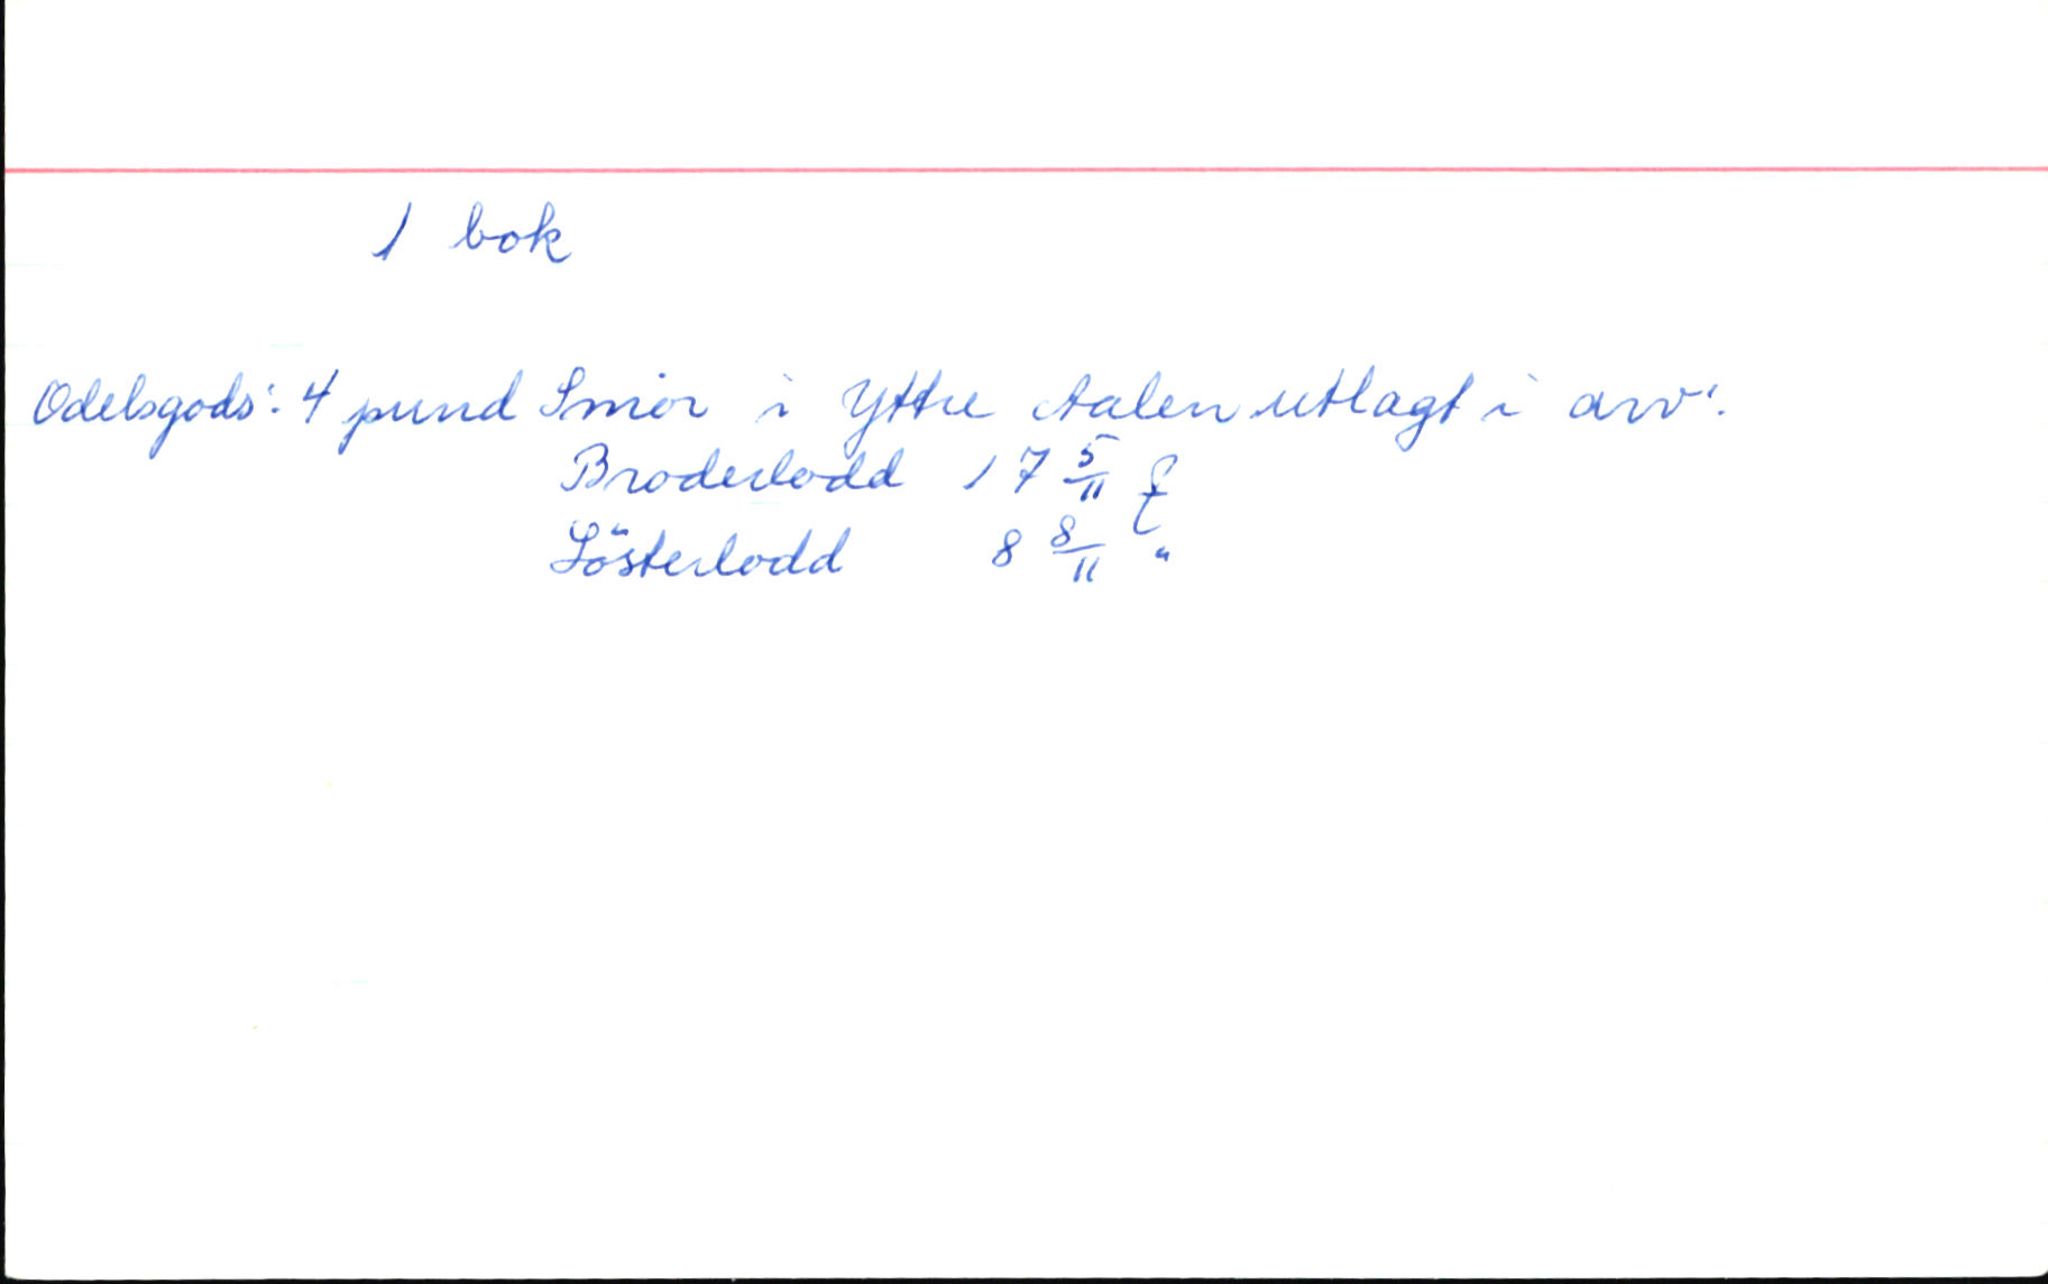 1 bok
Odelsgods: 4 pund Smör i Yttre Aalen utlagt i arv:
Broderlodd 17 5/11 ℔
Sösterlodd 8 8/11 "